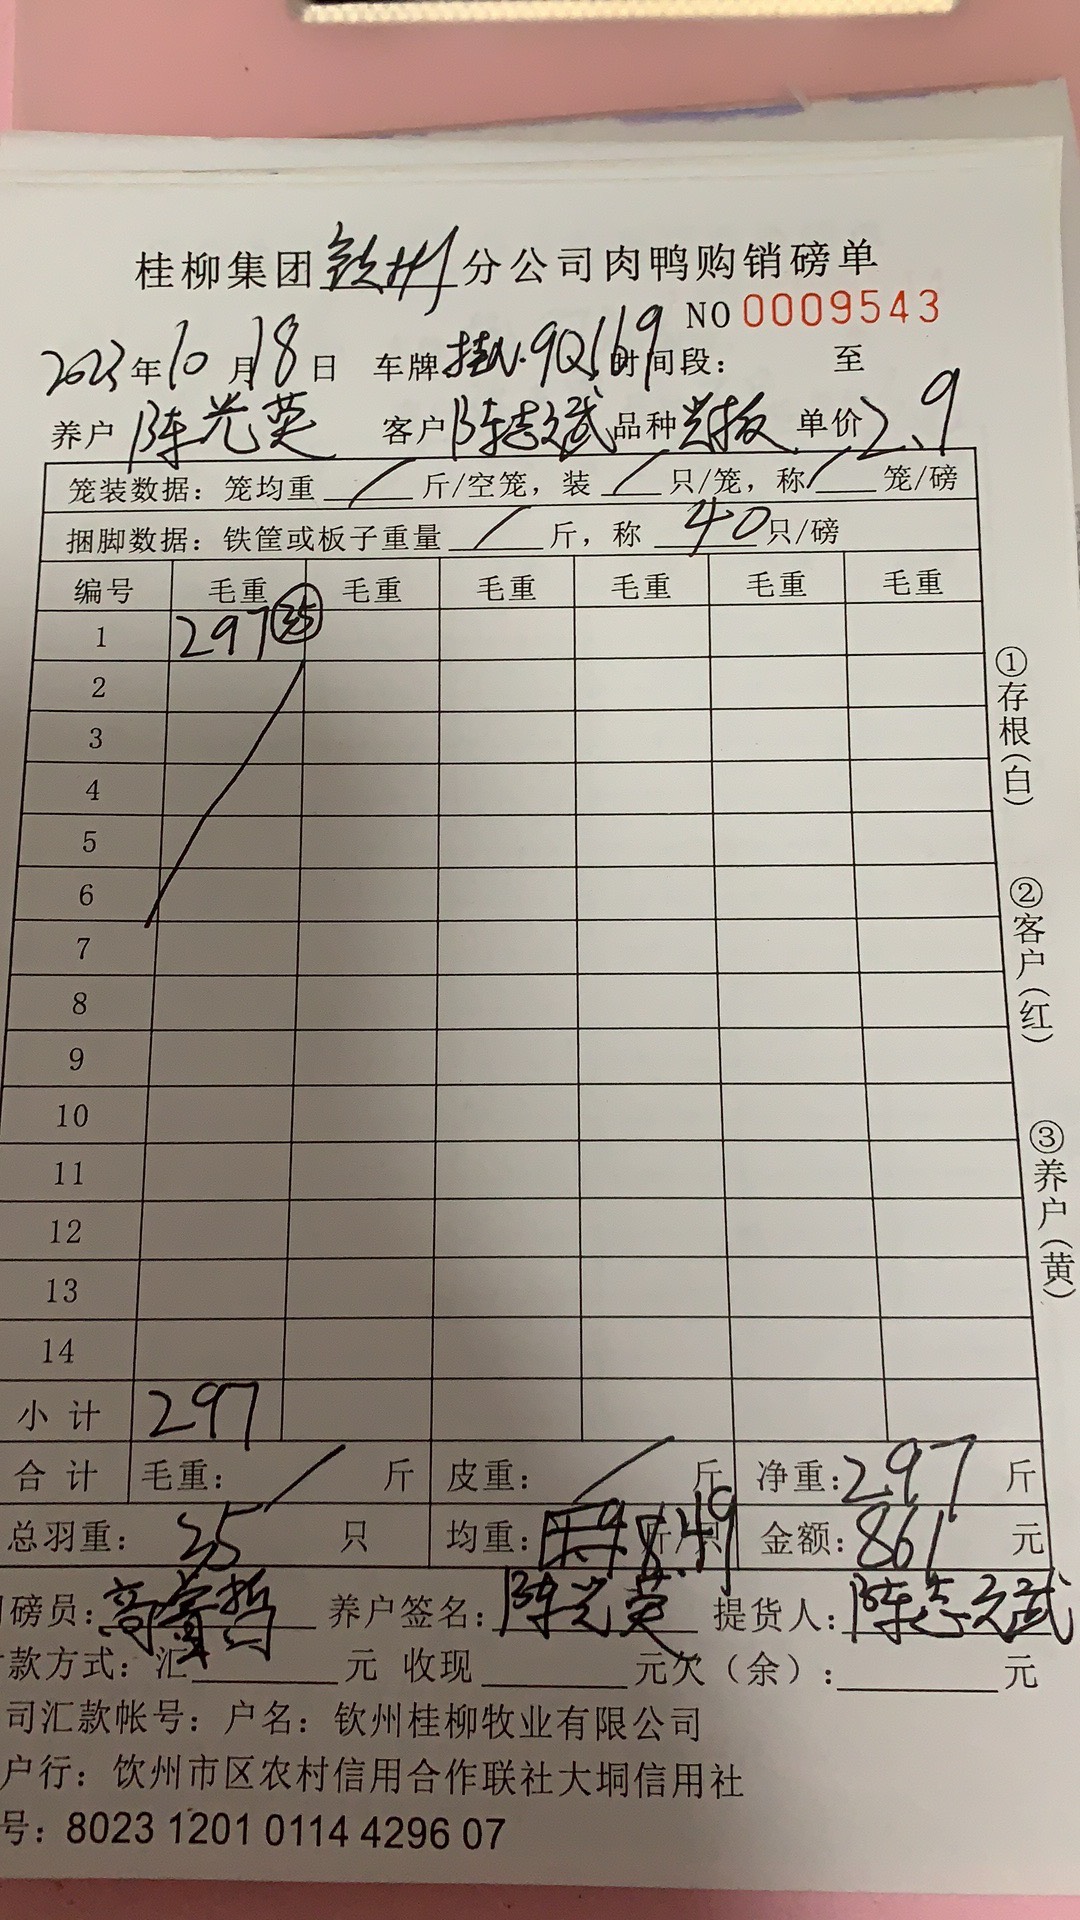 桂柳集团钦州分公司肉鸭购销磅单
NO 0009543
2023年10月18日 车牌桂N·9Q169时间段： 至
养户陈光英 客户陈志斌品种光板单价2.9
笼装数据：笼均重/斤/空笼，装/只/笼，称/笼/磅
捆脚数据：铁筐或板子重量/斤，称40只/磅
编号 毛重 毛重 毛重 毛重 毛重 毛重
1 297 35
2
3
4
5
6
7
8
9
10
11
12
13
14
小计 297
合计 毛重：/斤 皮重：/斤 净重：297斤
总羽重：35只 均重：8.49斤/只 金额：861元
磅员： 养户签名：陈光英 提货人：陈志斌
款方式：汇 元 收现 元欠（余）： 元
司汇款帐号：户名：钦州桂柳牧业有限公司
户行：钦州市区农村信用合作联社大垌信用社
号：8023 1201 0114 4296 07
①存根（白）
②客户（红）
③养户（黄）